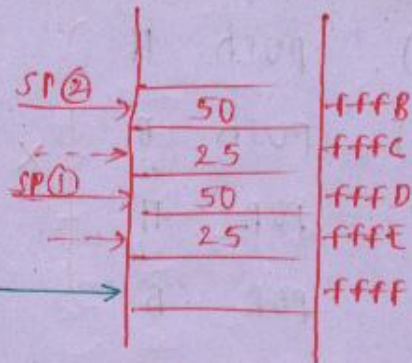 SP② 50 fffB
25 fffC
SP① 50 fffD
25 fffE
ffff